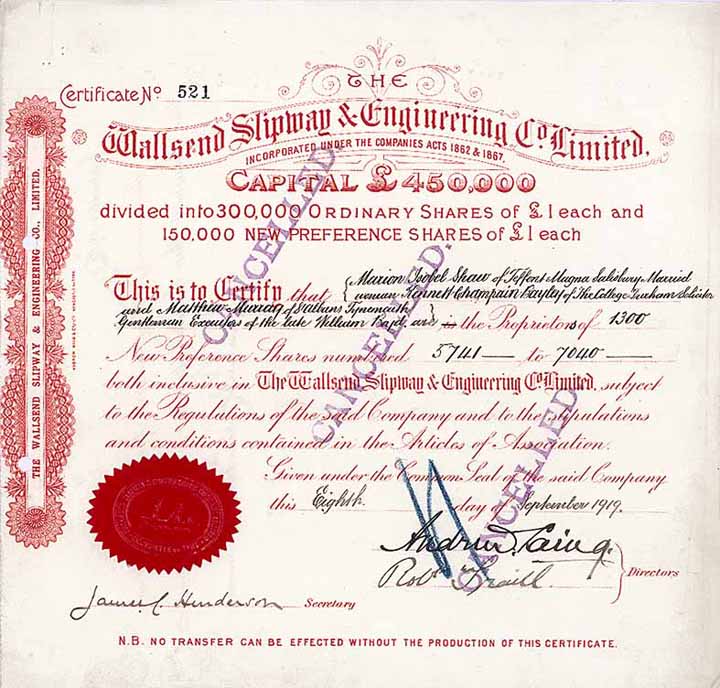 Certificate No 521
THE
Wallsend Slipway & Engineering Co. Limited.
INCORPORATED UNDER THE COMPANIES ACTS 1862 & 1867.
CAPITAL £450,000
divided into 300,000 ORDINARY SHARES of £1 each and
150,000 NEW PREFERENCE SHARES of £1 each
This is to Certify that Marion Isobel Shaw of Teffont Magna Salisbury Married
woman Kennett Champain Bayley of The College Durham Solicitor
and Matthew of St Albans Tynemouth
Gentleman Executors of the late William Boyd, are is the Proprietors of 1300
New Preference Shares numbered 5741 — to 7040 —
both inclusive in The Wallsend Slipway & Engineering Co. Limited, subject
to the Regulations of the said Company and to the stipulations
and conditions contained in the Articles of Association.
Given under the Common Seal of the said Company
this Eighth day of September 1919.
Andrew Laing.
Robt Traill
Directors
James C. Henderson Secretary
N.B. NO TRANSFER CAN BE EFFECTED WITHOUT THE PRODUCTION OF THIS CERTIFICATE.
THE WALLSEND SLIPWAY & ENGINEERING CO., LIMITED.
CANCELLED.
CANCELLED.
CANCELLED